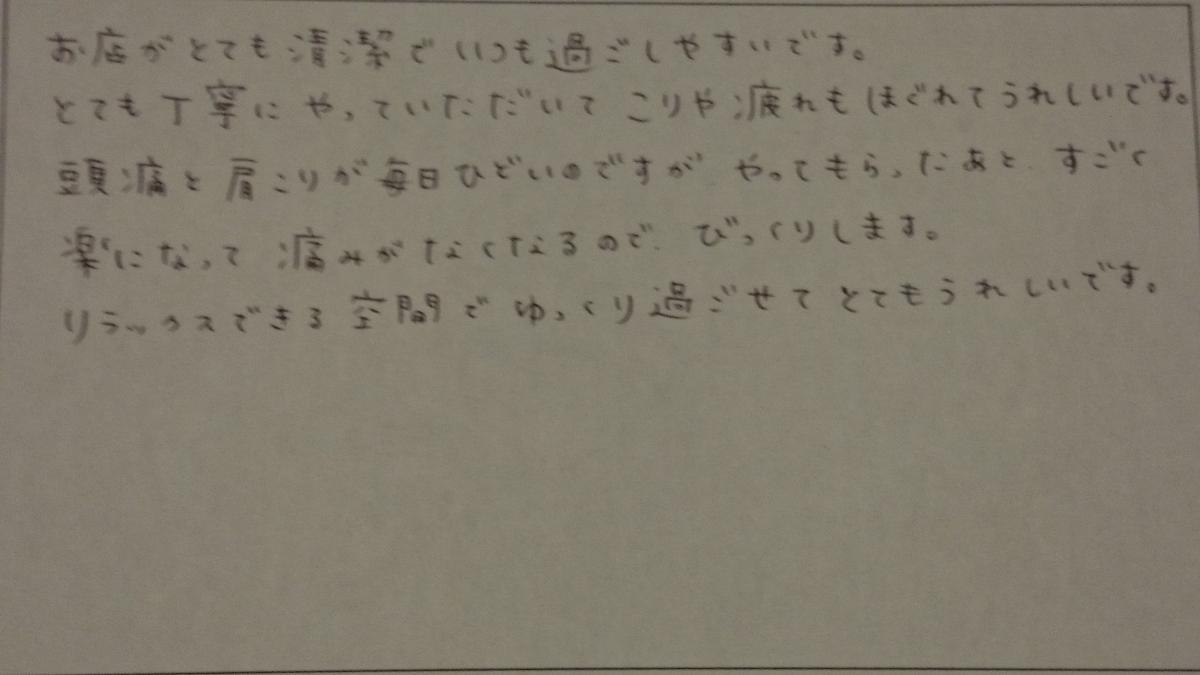 お店がとても清潔でいつも過ごしやすいです。
とても丁寧にやっていただいて こりや疲れもほぐれてうれしいです。
頭痛と肩こりが毎日ひどいのですが やってもらったあと、すごく
楽になって 痛みがなくなるので、びっくりします。
リラックスできる空間でゆっくり過ごせてとてもうれしいです。